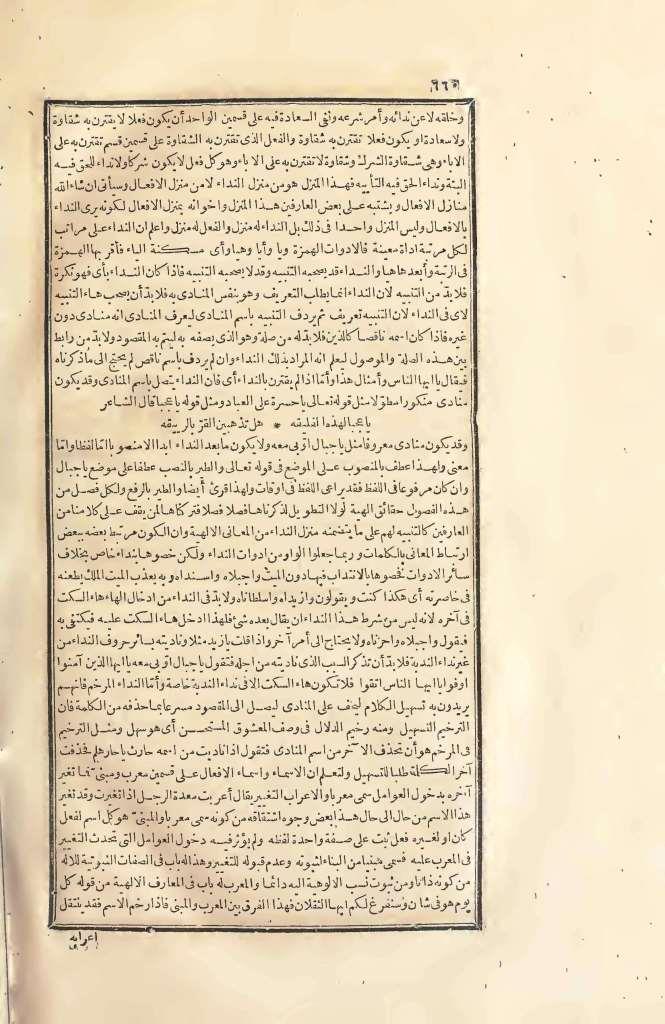 ٦٦٥
وخلقه لا عن ندائه وأمر شرعه ولنفي السعادة فيه على قسمين الواحد أن يكون فعلا لا يقترن به شقاوة
ولا سعادة او يكون فعلا تقترن به شقاوة والفعل الذي تقترن به الشقاوة على قسمين قسم تقترن به على
الاباء وهي شقاوة الشرك وشقاوة لا تقترن به على الاباء وهو كل فعل لا يكون شركا ولا نداء للحق فيه
البتة ونداء الحق فيه التأييه فهذا المنزل هو من منزل النداء لا من منزل الافعال وسيأتي ان شاء الله
منازل الافعال ويشتبه على بعض العارفين هذا المنزل واخوانه بمنزل الافعال لكونه يرى النداء
بالافعال وليس المنزل واحدا في ذلك بل النداء له منزل والفعل له منزل واعلم ان النداء على مراتب
لكل مرتبة اداة معينة فالادوات الهمزة ويا وأيا وهيا وأي مسكنة الياء فأقربها الهمزة
في الرتبة وأبعدها هيا والنداء قد يصحبه التنبيه وقد لا يصحبه التنبيه فاذا كان النداء بأي فهو نكرة
فلا بد من التنبيه لان النداء انما يطلب التعريف وهو بنفس المنادى به فلا بد أن يصحب هاء التنبيه
لاي في النداء لان التنبيه تعريف ثم يردف التنبيه باسم المنادى ليعرف المنادى انه منادى دون
غيره فاذا كان اسمه ناقصا كالذين فلا بد له من صلة وهو الذي يصفه به ليتم به المقصود ولا بد من رابط
بين هذه الصلة والموصول ليعلم انه المراد بذلك النداء وان لم يردف باسم ناقص لم يحتج الى ما ذكرناه
فيقال يا ايها الناس وأمثال هذا وأما اذا لم يقترن بالنداء أي فان النداء يتصل باسم المنادى وقد يكون
منادى منكورا مطولا مثل قوله تعالى يا حسرة على العباد ومثل قوله يا عجبا قال الشاعر
يا عجبا لهذه الفليقه * هل تذهبن القوباء الريقه
وقد يكون منادى معروفا مثل يا جبال اوبي معه ولا يكون ما بعد النداء ابدا الا منصوبا اما لفظا واما
معنى ولهذا عطف بالمنصوب على الموضع في قوله تعالى والطير بالنصب عطفا على موضع يا جبال
وان كان مرفوعا في اللفظ فقد يراعى اللفظ في اوقات ولهذا قرئ أيضا والطير بالرفع ولكل فصل من
هذه الفصول حقائق الهية لولا التطويل لذكرناها فصلا فصلا فتركناها لمن يقف على كلامنا من
العارفين كالتنبيه لهم على ما يتضمنه منزل النداء من المعاني الالهية وان الكون مرتبط بعضه ببعض
ارتباط المعاني بالكلمات وربما جعلوا الواو من ادوات النداء ولكن خصوها بنداء خاص بخلاف
سائر الادوات فخصوها بالانتداب فيها دون الميت واجبلاه واسنداه وبه يعذب الميت الملك يطعنه
في خاصرته أي هكذا كنت ويقولون وازيداه واسلطاناه ولا بد في النداء من ادخال الهاء هاء السكت
في آخره لانه ليس من شرط هذا النداء ان يقال بعده شيء فلهذا ادخل هاء السكت عليه فيكتفي به
فيقول واجبلاه واحزناه ولا يحتاج الى أمر آخر واذا قلت يا زيد مثلا وناديته بسائر حروف النداء من
غير نداء الندبة فلا بد أن تذكر السبب الذي ناديته من اجله فتقول يا جبال اوبي معه يا ايها الذين آمنوا
اوفوا يا ايها الناس اتقوا فلا تكون هاء السكت الا في نداء الندبة خاصة وأما النداء المرخم فانهم
يريدون به تسهيل الكلام ليخف على المنادى ليصل الى المقصود مسرعا بما حذفه من الكلمة فان
الترخيم التسهيل ومنه رخيم الدلال في وصف المعشوق المستحسن أي هو سهل ومثل الترخيم
في المرخم هو أن تحذف الآخر من اسم المنادى فتقول اذا ناديت من اسمه حارث يا حار هلم فحذفت
آخر الكلمة طلبا للتسهيل ولتعلم ان الاسماء واسماء الافعال على قسمين معرب ومبني فما تغير
آخره بدخول العوامل سمي معربا والاعراب التغيير يقال أعربت معدة الرجل اذا تغيرت وقد تغير
هذا الاسم من حال الى حال هذا بعض وجوه اشتقاقه من كونه سمي معربا والمبني هو كل اسم لفعل
كان او لغيره فعل ثبت على صفة واحدة لفظه ولم يؤثر فيه دخول العوامل التي تحدث التغيير
في المعرب عليه فسمي مبنيا من البناء لثبوته وعدم قبوله للتغيير وهذا له باب في الصفات الثبوتية للاله
من كونه ذاتا ومن ثبوت نسب الالوهية اليه دائما والمعرب له باب في المعارف الالهية من قوله كل
يوم هو في شان وسنفرغ لكم ايها الثقلان فهذا الفرق بين المعرب والمبني فاذا رخم الاسم فقد ينتقل
اعرابه